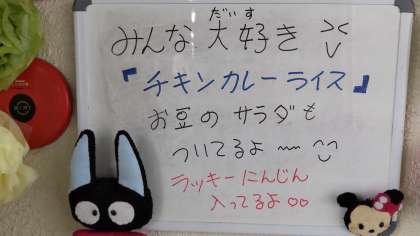 みんな大好き
だいす
『チキンカレーライス』
お豆のサラダも
ついてるよ〜
ラッキーにんじん
入ってるよ